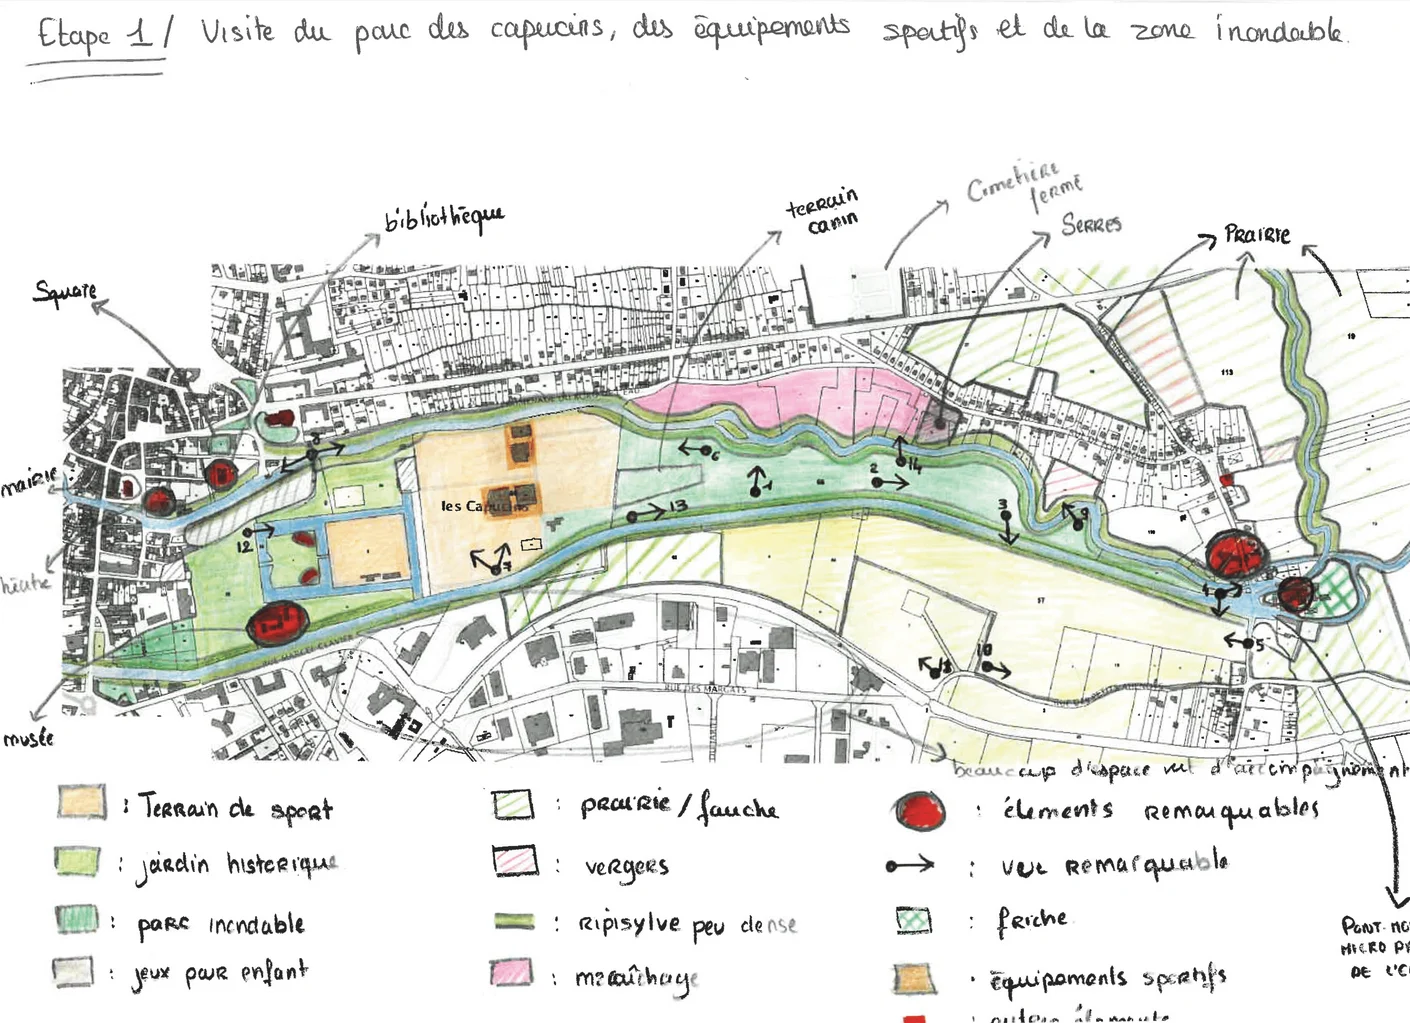 Etape 1 / Visite du parc des capucins, des équipements sportifs et de la zone inondable.
Cimetière
fermé
terrain
canin
bibliothèque
SERRES
PRAIRIE
Square
19
113
mairie
8
6
14
2
1
68
les Capucins
13
3
9
12
7
4
57
5
10
RUE DES MARCATS
musée
beaucoup d'espace vert d'accompagnement
: Terrain de sport
: prairie / fauche
: éléments remarquables
: jardin historique
: vergers
: vue remarquable
: parc inondable
: ripisylve peu dense
: friche
: jeux pour enfant
: maraîchage
: équipements sportifs
PONT
MICRO
DE
: autres éléments